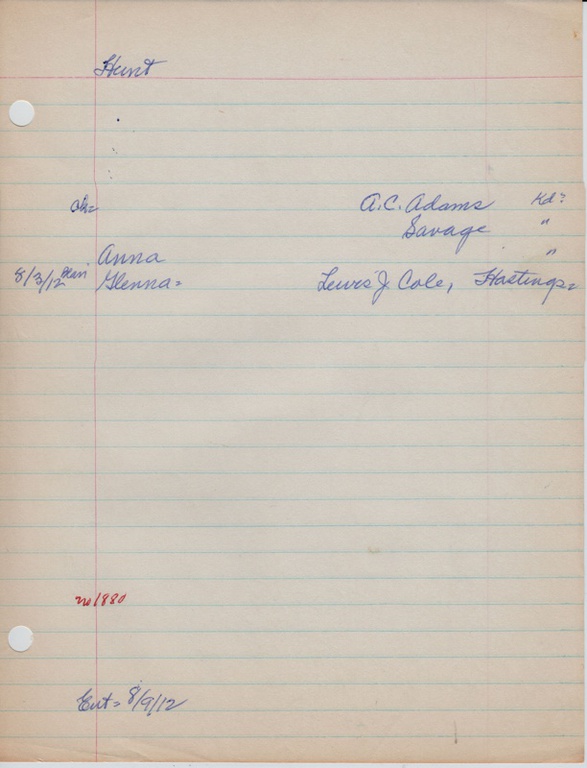 Hunt
Ch= A.C. Adams Kd?
Savage "
Anna "
8/3/12 Glenna= Lewis J Cole, Hastings=
no 1880
Ent= 8/9/12